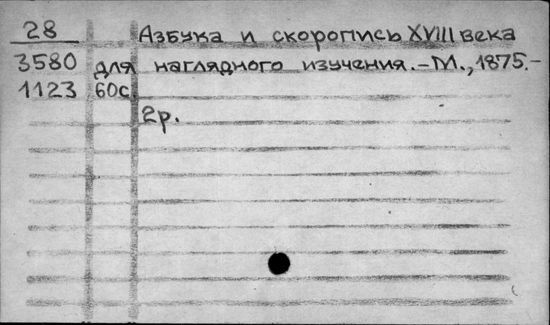 28 Азбука и скоропись XVIII века
3580 для наглядного изучения.-М., 1875.-
1123 60с.
2р.